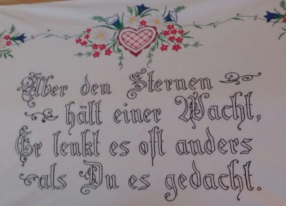 Über den Sternen
hält einer Wacht,
Er lenkt es oft anders
als Du es gedacht.